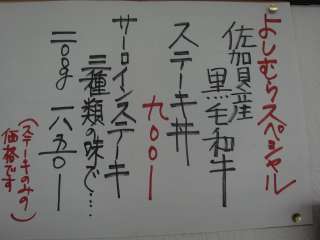 よしむらスペシャル
佐加貝産
黒毛和牛
ステーキ丼
九〇〇ー
サーロインステーキ
三種類の味で…
二〇〇g 一八五〇ー
(ステーキのみの
価格です)